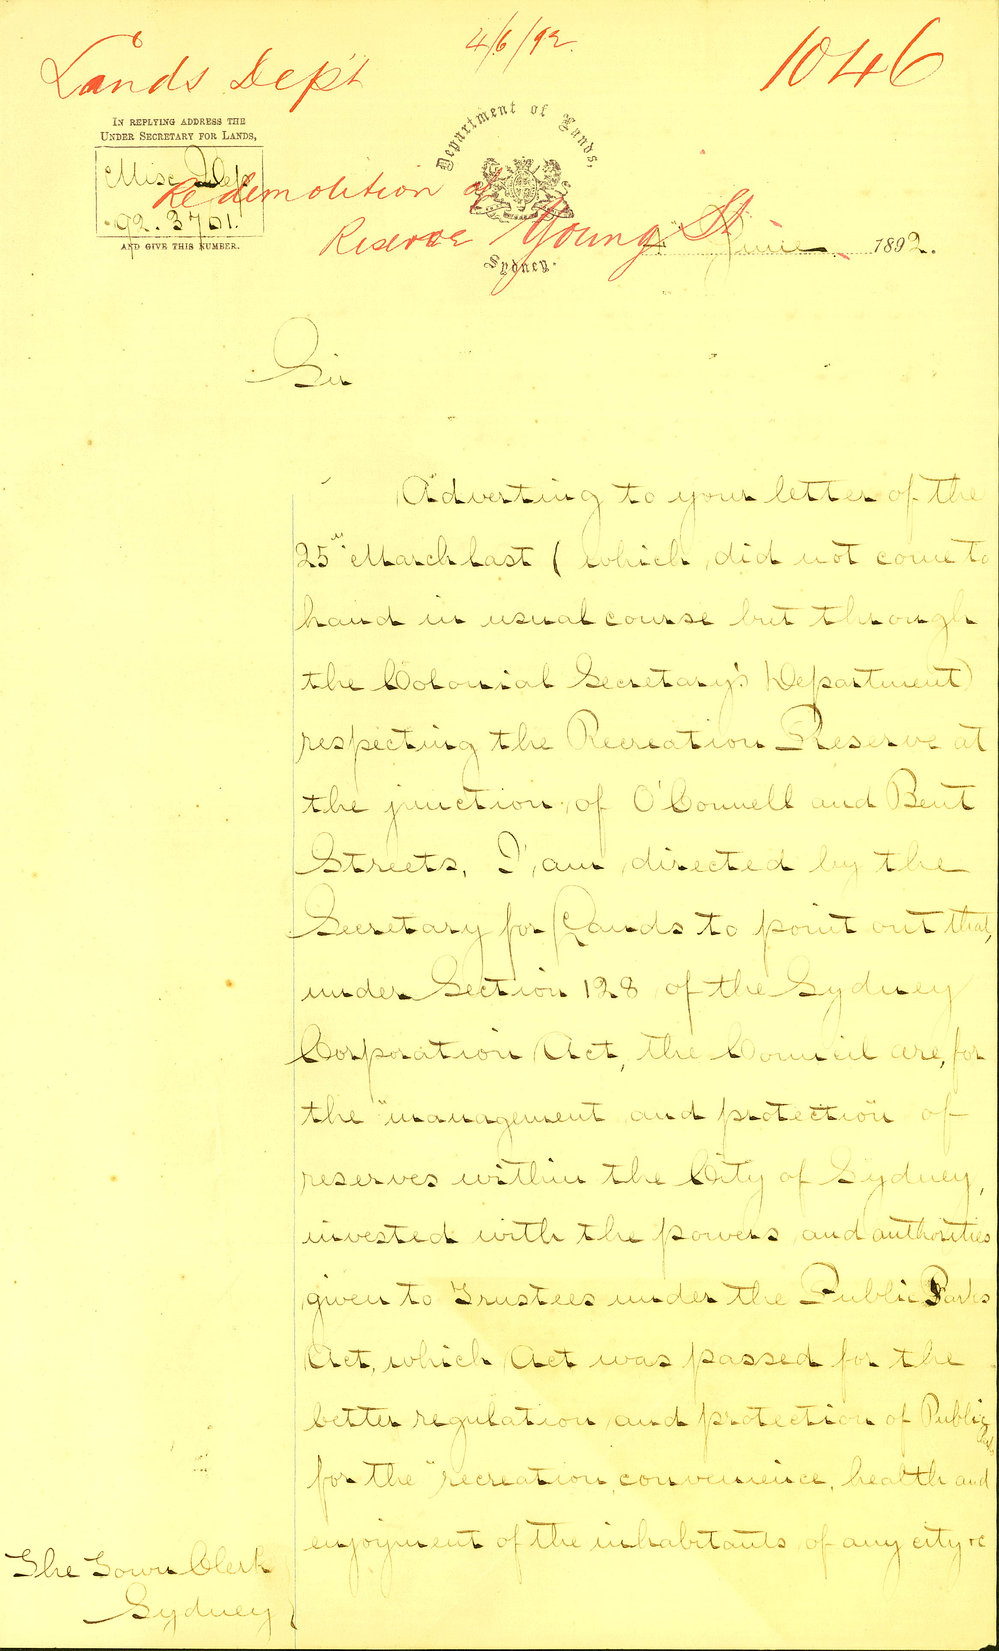 4/6/92.
1046
Lands Dep't
IN REPLYING ADDRESS THE
UNDER SECRETARY FOR LANDS,
Misc Dep
92.3701.
AND GIVE THIS NUMBER.
Department of Lands,
Sydney.
Re demolition of
Reserve Young St
June 1892.
Sir
Adverting to your letter of the
25th March last (which did not come to
hand in usual course but through
the Colonial Secretary's Department)
respecting the Recreation Reserve at
the junction of O'Connell and Bent
Streets, I am directed by the
Secretary for Lands to point out that,
under Section 128 of the Sydney
Corporation Act, the Council are, for
the "management and protection" of
reserves within the City of Sydney,
invested with the powers and authorities
given to Trustees under the Public Parks
Act, which Act was passed for the
better regulation and protection of Public
Parks
for the "recreation, convenience, health and
enjoyment of the inhabitants of any city &c
The Town Clerk
Sydney